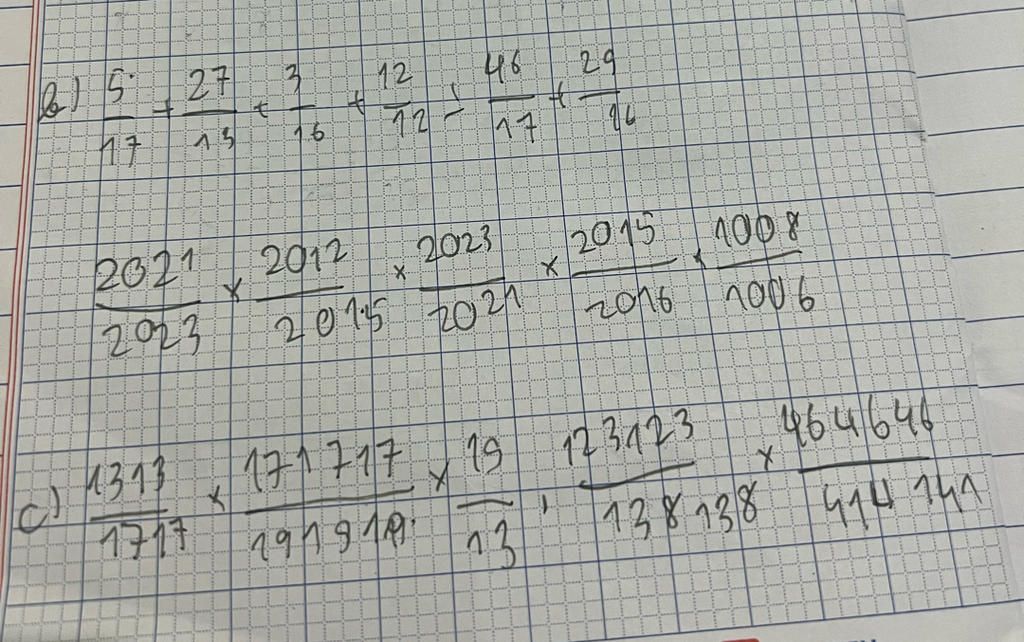 b) 5/17 + 27/13 + 3/16 + 12/12 + 46/17 + 29/16
2021/2023 × 2012/2015 × 2023/2021 × 2015/2016 × 1008/1006
c) 1313/1717 × 171717/191919 × 19/13 ; 123123/138138 × 464646/414141